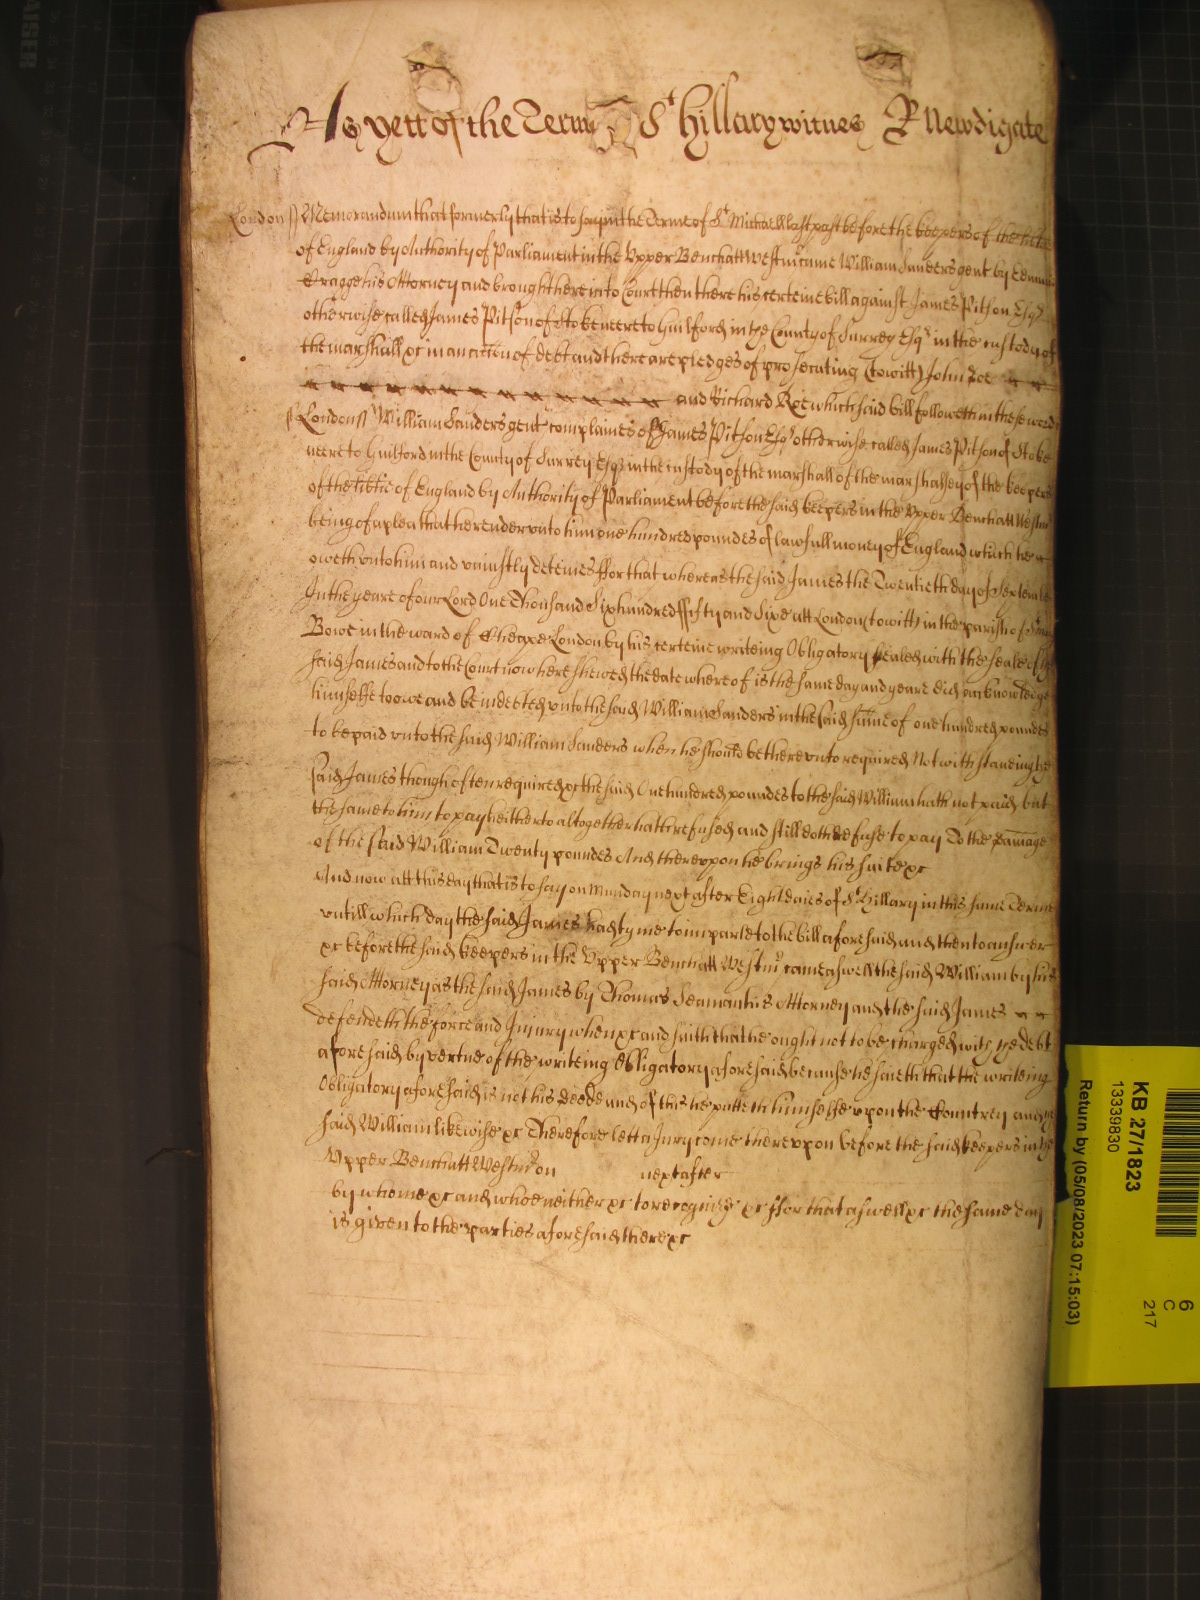 As yett of the Terme S^t Hillary witnes R Newdigate
London ss Memorandum that formerly that is to say in the Terme of S^t Michaell last past before the keepers of the lib̃tie
of England by Authority of Parliament in the Upper Bench att Westm̃ came William Sanders gent by Edmund
Cragge his Attorney and brought here into Court then there his certeine bill against James Pitson Esq^r
otherwise called James Pitson of Stoke neere to Guilford in the County of Surrey Esq^r in the custody of
the marshall &c in an acc̃on of debt and there are pledges of prosecuting (to witt) John Doe
and Richard Roe which said bill followeth in these words
ss London ss William Sanders gent complaines of James Pitson Esq^r otherwise called James Pitson of Stoke
neere to Guilford in the County of Surrey Esq^r in the custody of the marshall of the marshalsey of the keepers
of the lib̃tie of England by Authority of Parliament before the said keepers in the Upper Bench att Westm̃
being of a plea that he render unto him one hundred poundes of lawfull money of England which he
oweth unto him and uniustly deteines ffor that whereas the said James the Twentieth day of September
In the yeare of our Lord One Thousand Six hundred ffifty and Sixe att London (to witt) in the parish of S^t Mary
Bowe in the ward of Cheape London by his certeine writeing Obligatory sealed with the seale of the
said James and to the Court now here shewed the date whereof is the same day and yeare did acknowledge
himselfe to owe and be indebted unto the said William Sanders in the said sum̃e of one hundred poundes
to be paid unto the said William Sanders when he should be thereunto required Notwithstanding the
said James though often required &c the said One hundred poundes to the said William hath not paid but
the same to him to pay heitherto altogether hath refused and still doth refuse to pay To the damage
of the said William Twenty poundes And thereuppon he brings his suite &c
And now att this day that is to say on Munday next after Eight daies of S^t Hillary in this same Terme
untill which day the said James had tyme to imparle to the bill aforesaid and then to answer
&c before the said keepers in the Upper Bench att Westm̃ came aswell the said William by his
said Attorney as the said James by Thomas Seaman his Attorney and the said James
defendeth the force and Injury when &c and saith that he ought not to be charged with the debt
aforesaid by vertue of the writeing Obligatory aforesaid because he saieth that the writeing
Obligatory aforesaid is not his deede and of this he putteth himselfe upon the Countrey and the
said William likewise &c Therefore lett a Jury come thereupon before the said keepers in the
Upper Bench att Westm̃ on next after
by whome &c and whoe neither &c to recognize &c ffor that aswell &c the same day
is given to the parties aforesaid there &c
KB 27/1823
13339830
Return by (05/08/2023 07:15:03)
6
C
217